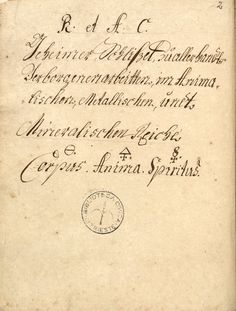 2
R. et A. C.
Geheimer Schlißel, zu allerhandt
Verborgenen arbeitten, im Anima-
lischen, Metallischen, undt
Mineralischen Reiche
Corpus. Anima. Spiritus.
BIBLIOTECA CIVICA
TRIESTE